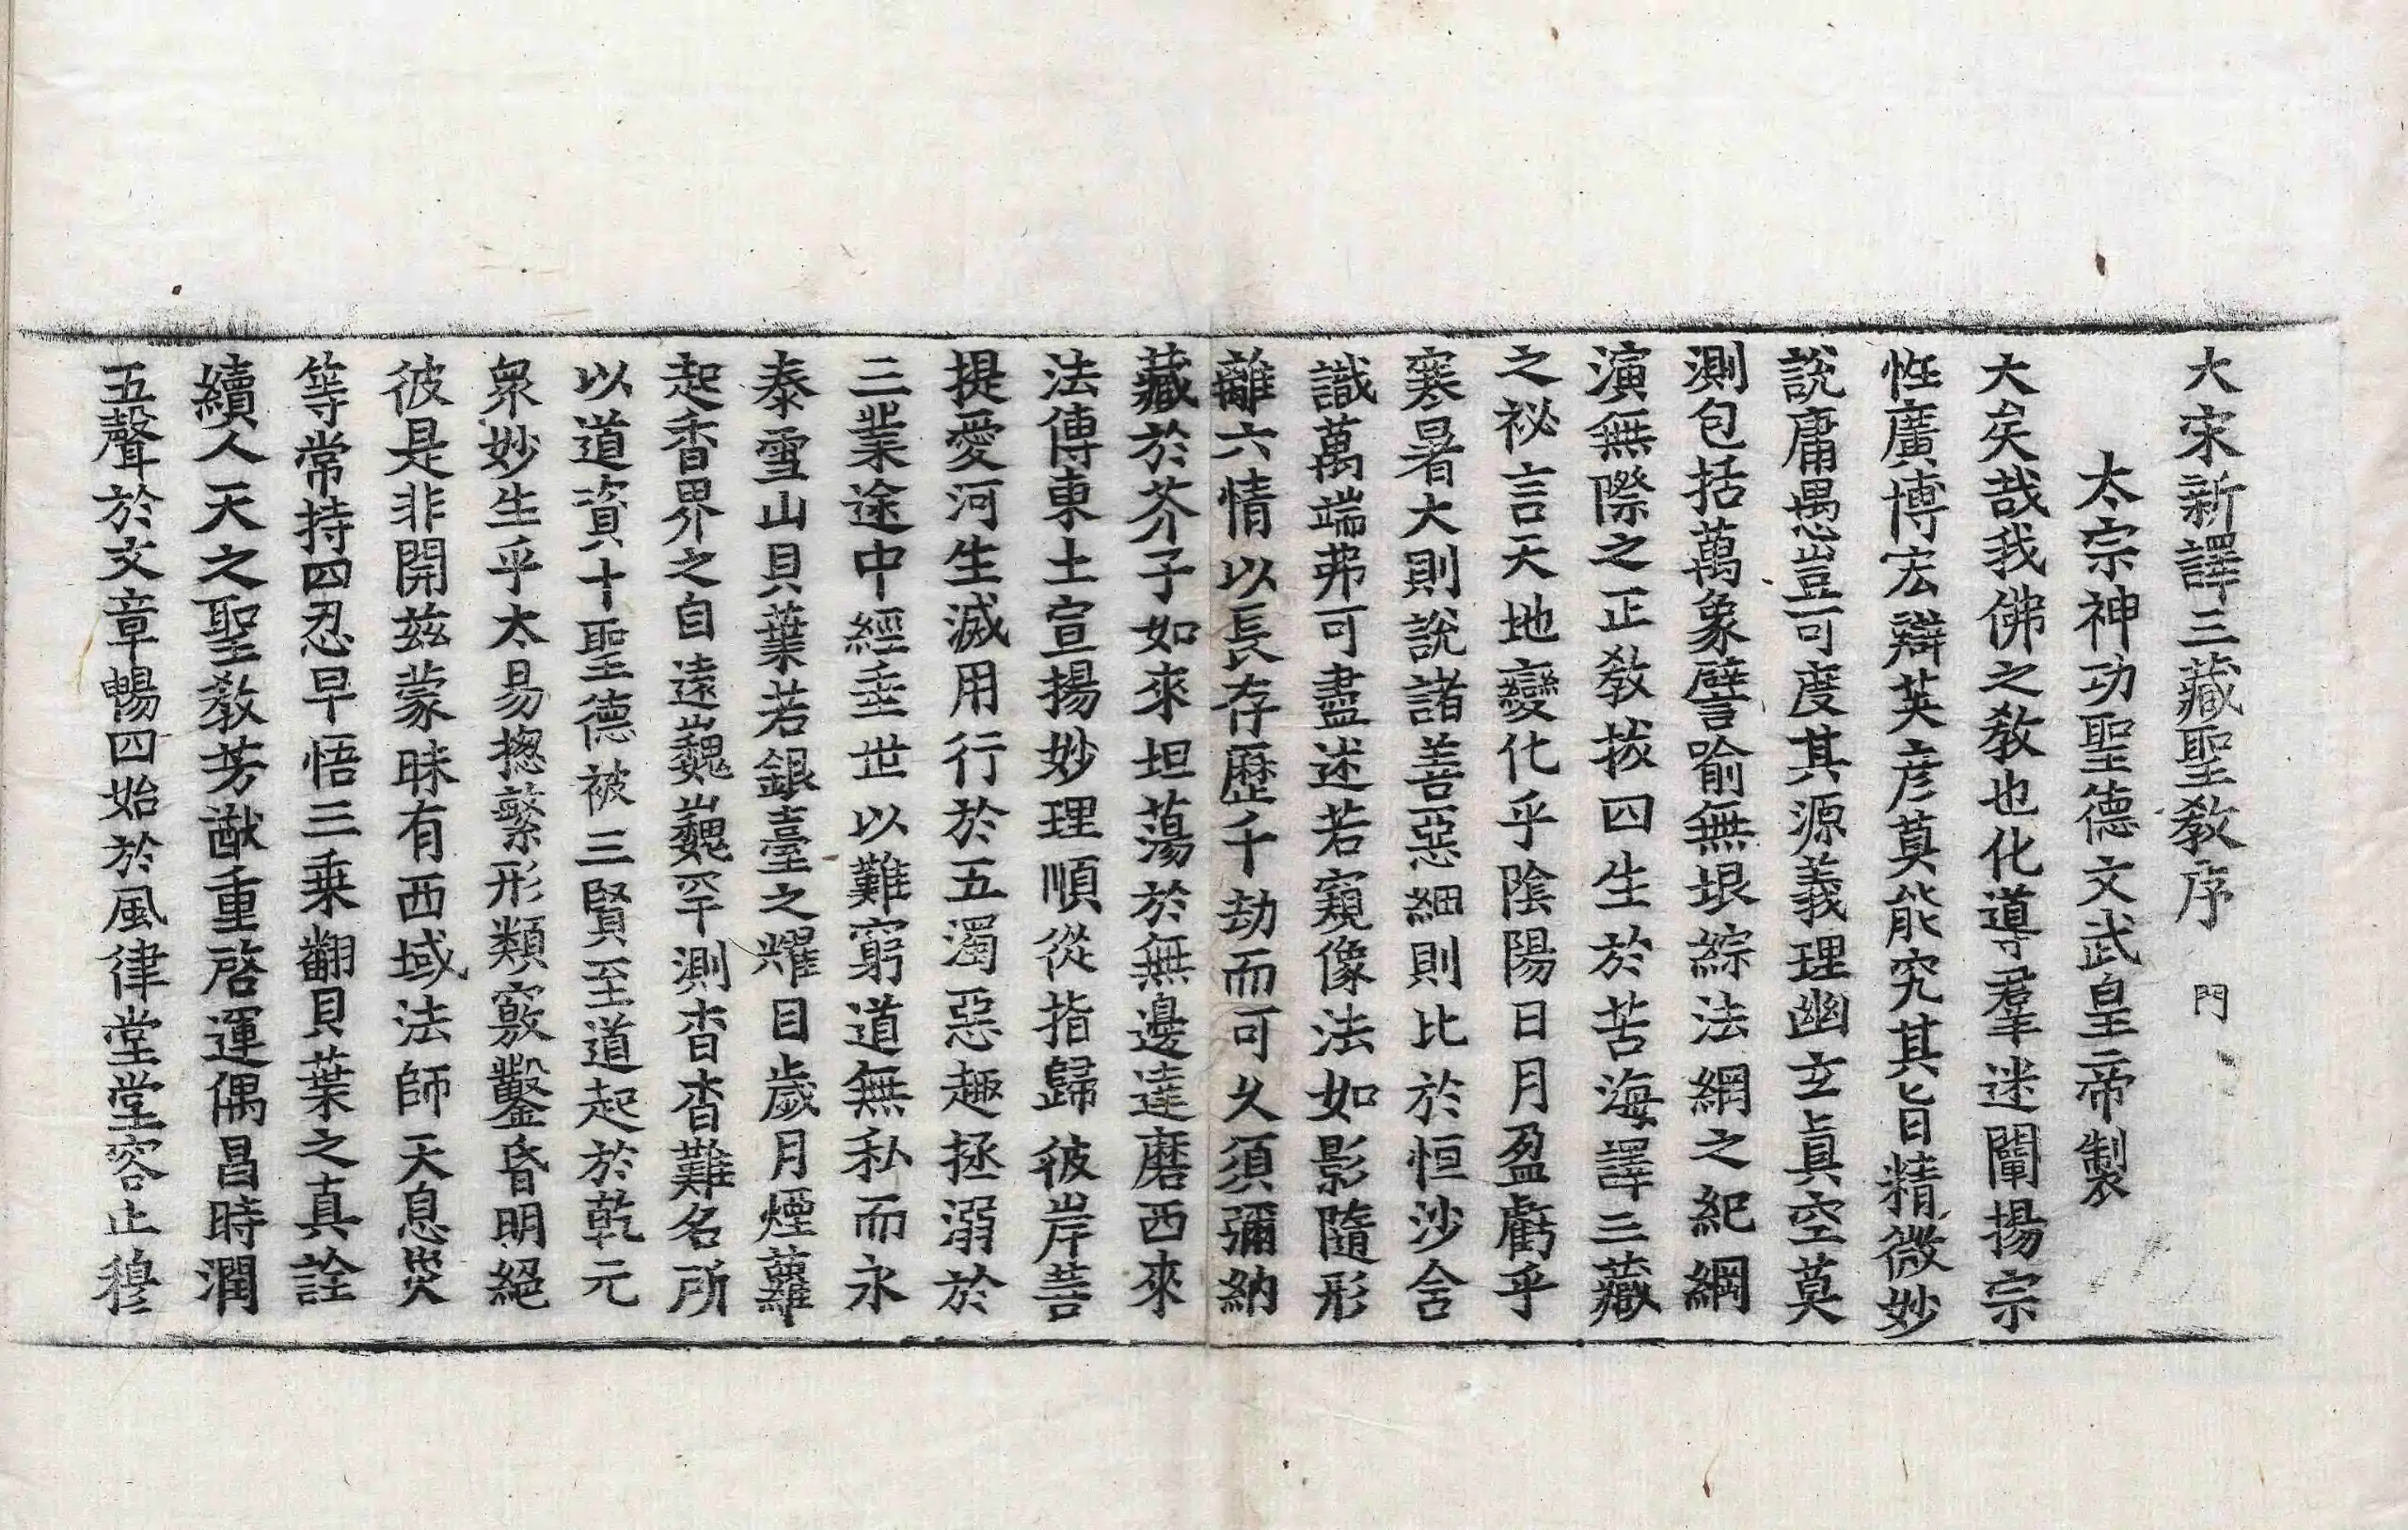 大宋新譯三藏聖教序　門
太宗神功聖德文武皇帝製
大矣哉我佛之教也化導羣迷闡揚宗
性廣博宏辯英彥莫能究其旨精微妙
說庸愚豈可度其源義理幽玄眞空莫
測包括萬象譬喻無垠綜法網之紀綱
演無際之正教拔四生於苦海譯三藏
之祕言天地變化乎陰陽日月盈虧乎
寒暑大則說諸善惡細則比於恒沙含
識萬端弗可盡述若窺像法如影隨形
離六情以長存歷千劫而可久須彌納
藏於芥子如來坦蕩於無邊達磨西來
法傳東土宣揚妙理順從指歸彼岸菩
提愛河生滅用行於五濁惡趣拯溺於
三業途中經垂世以難窮道無私而永
泰雪山貝葉若銀臺之耀目歲月煙蘿
起香界之自遠巍巍罕測杳杳難名所
以道資十聖德被三賢至道起於乾元
衆妙生乎太易摠繁形類竅鑿昏明絕
彼是非開茲蒙昧有西域法師天息災
等常持四忍早悟三乗翻貝葉之真詮
續人天之聖教芳猷重啓運偶昌時潤
五聲於文章暢四始於風律堂堂容止穆